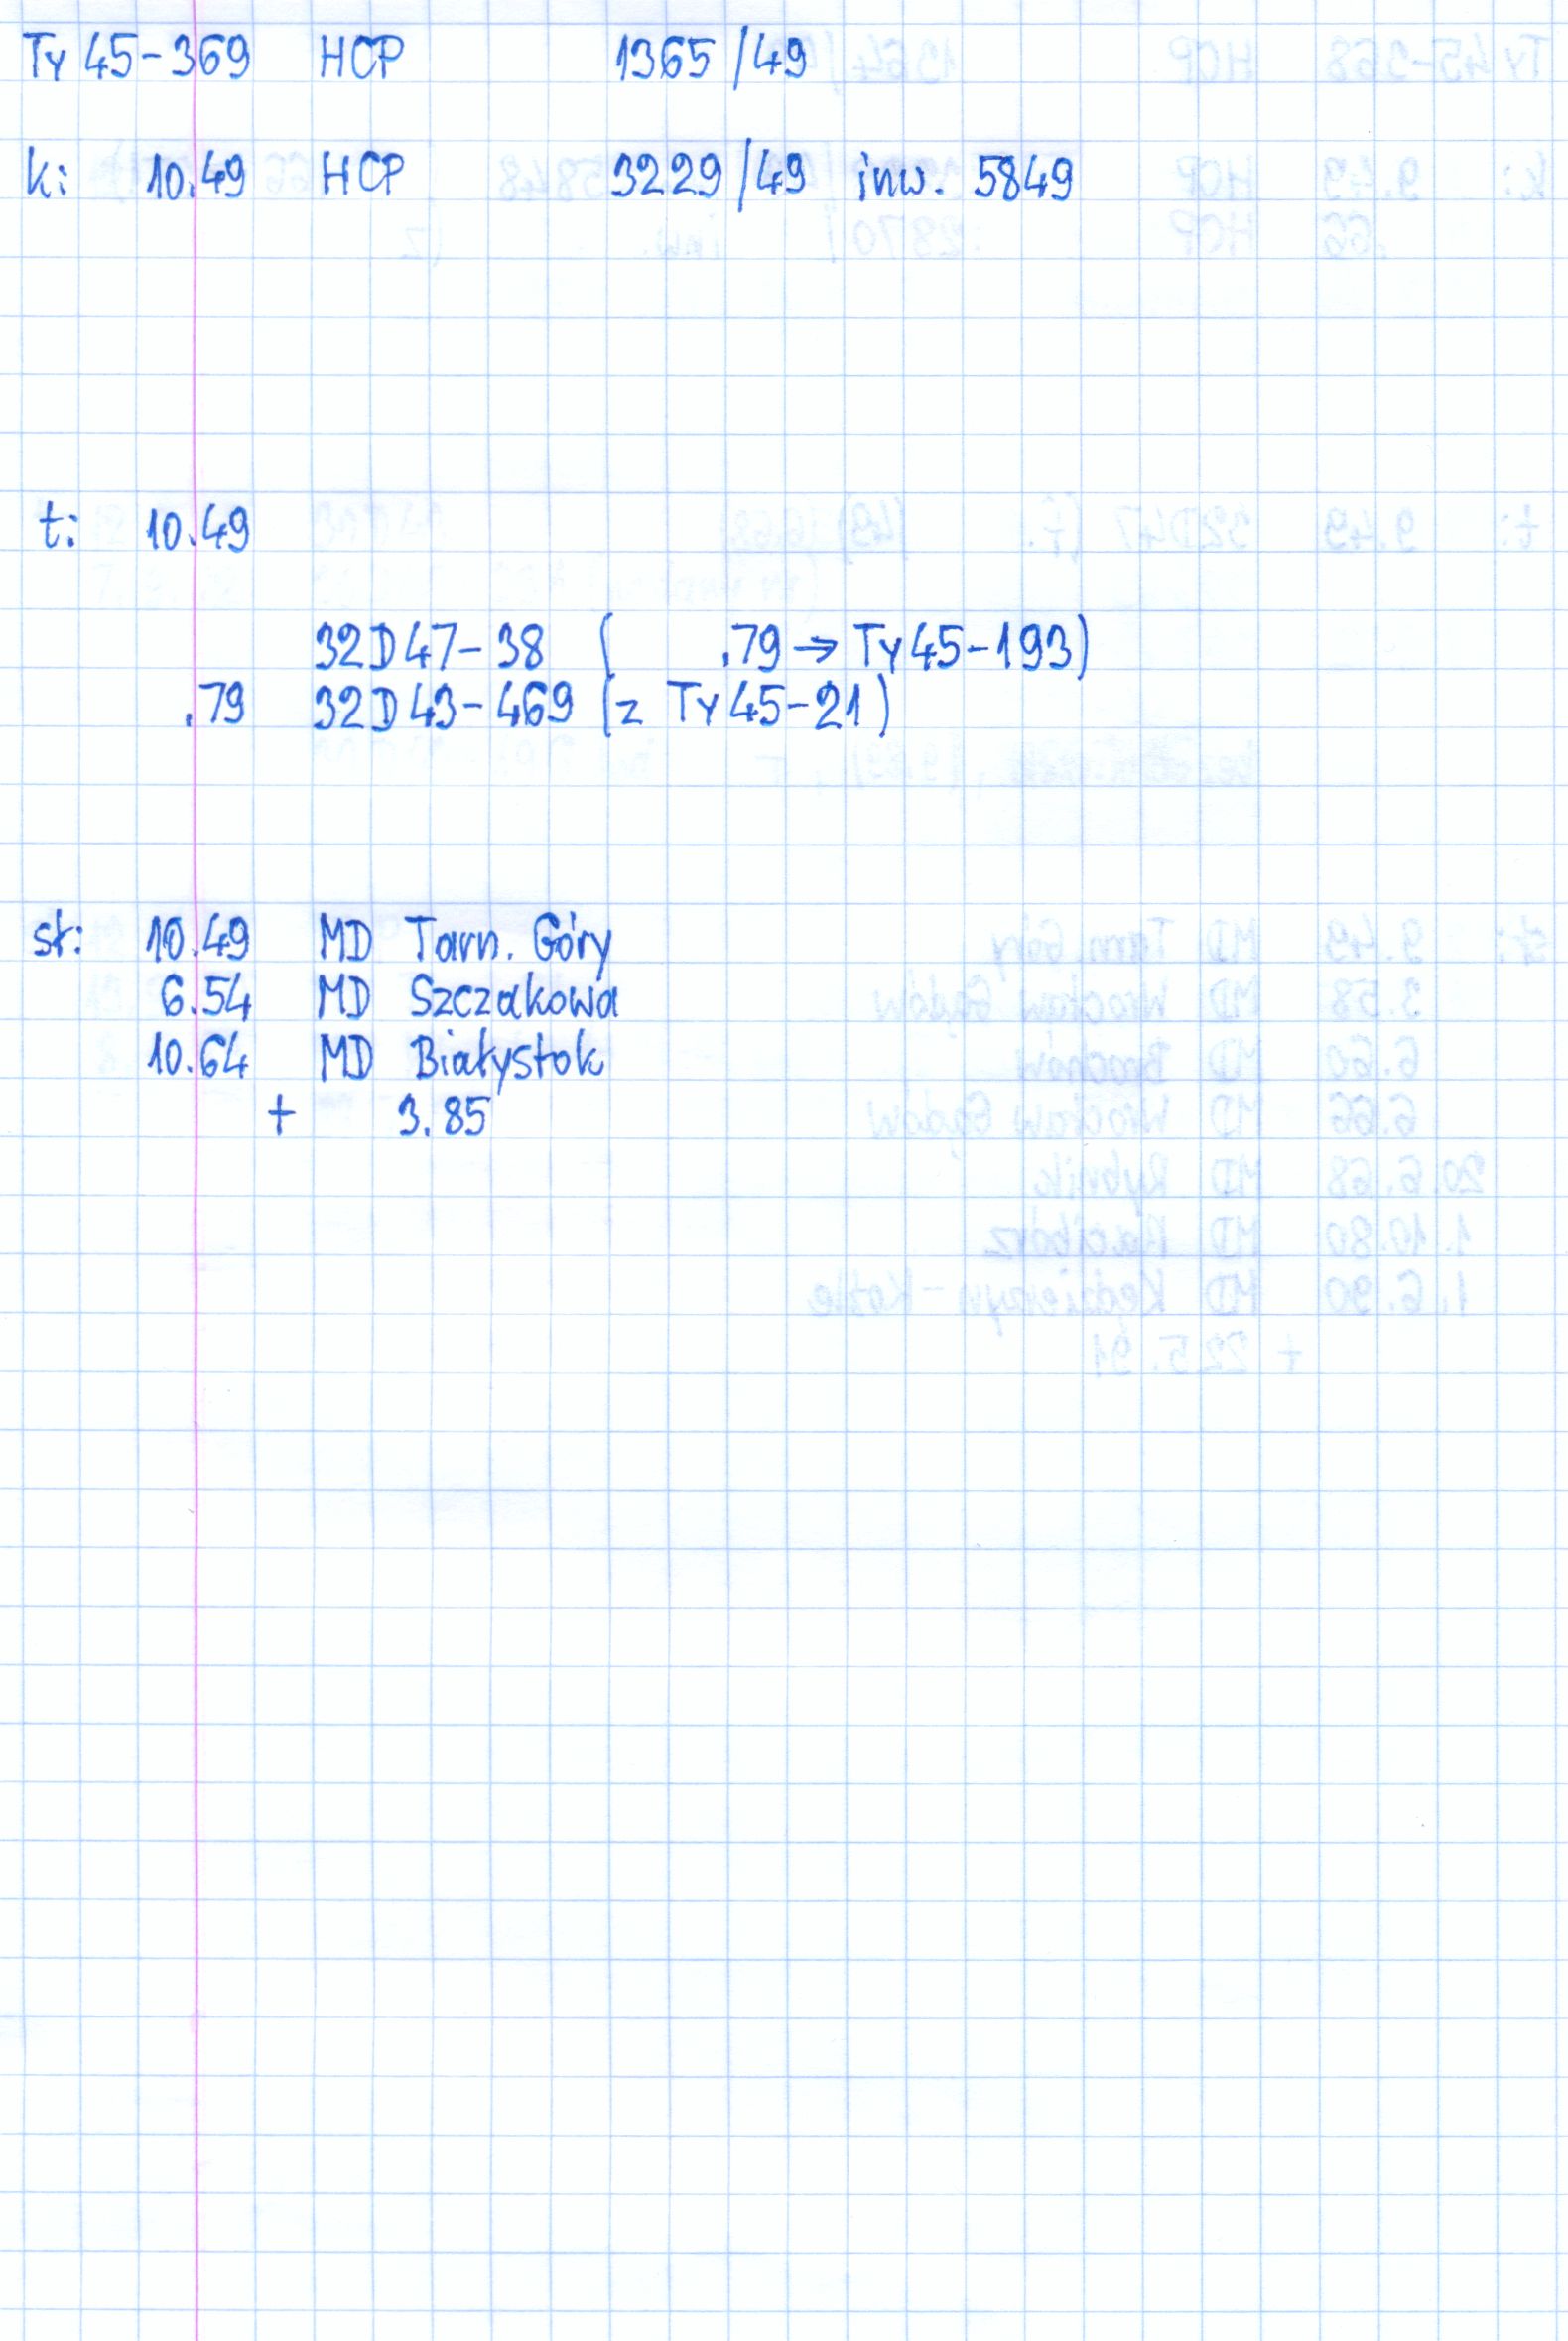 Ty 45-369 HCP 1365/49
k: 10.49 HCP 3229/49 inw. 5849
t: 10.49
32D47-38 ( .79 → Ty45-193)
.79 32D43-469 (z Ty45-21)
st: 10.49 MD Tarn. Góry
6.54 MD Szczakowa
10.64 MD Białystok
+ 3.85